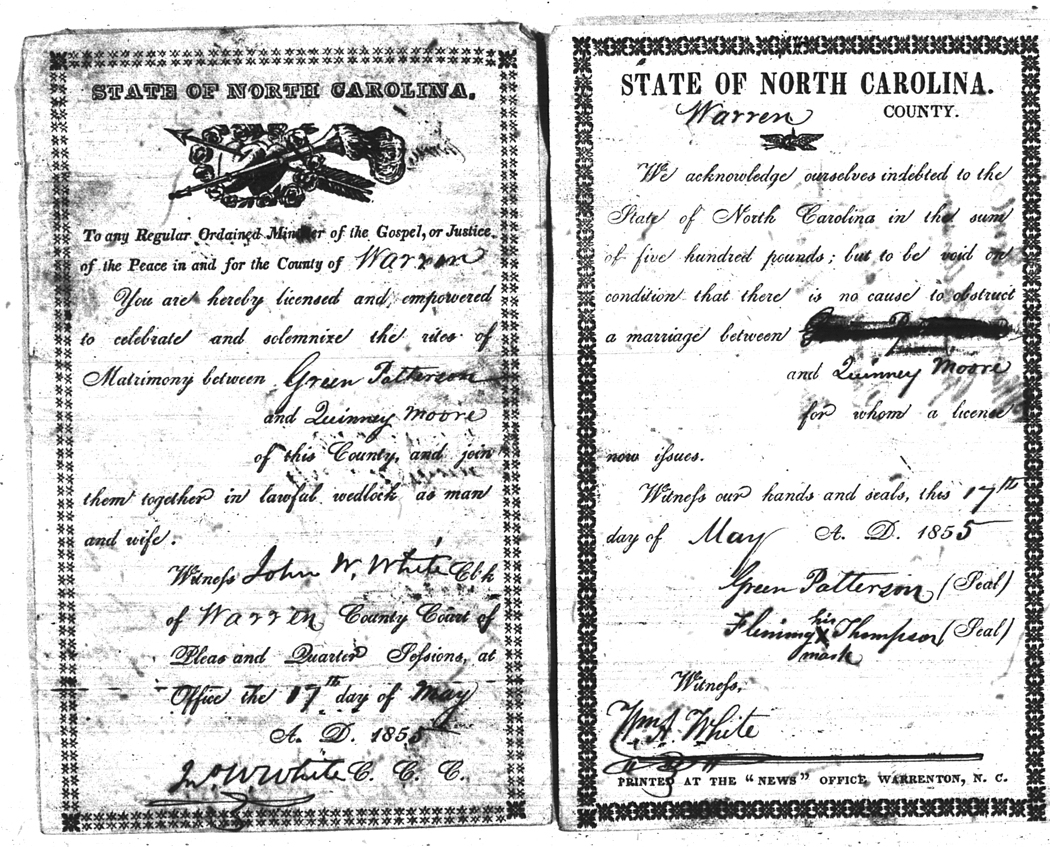 STATE OF NORTH CAROLINA.
To any Regular Ordained Minister of the Gospel, or Justice
of the Peace in and for the County of Warren
You are hereby licensed and empowered
to celebrate and solemnize the rites of
Matrimony between Green Patterson
and Quinney Moore
of this County, and join
them together in lawful wedlock as man
and wife.
Witness John W. White Clk
of Warren County Court of
Pleas and Quarter Sessions, at
Office the 17th day of May
A. D. 1855
Jno W White C. C. C.
STATE OF NORTH CAROLINA.
Warren COUNTY.
We acknowledge ourselves indebted to the
State of North Carolina in the sum
of five hundred pounds; but to be void on
condition that there is no cause to obstruct
a marriage between
and Quinney Moore
for whom a license
now issues.
Witness our hands and seals, this 17th
day of May A. D. 1855
Green Patterson (Seal)
his
Fleming X Thompson (Seal)
mark
Witness,
Wm A. White
PRINTED AT THE "NEWS" OFFICE WARRENTON, N. C.